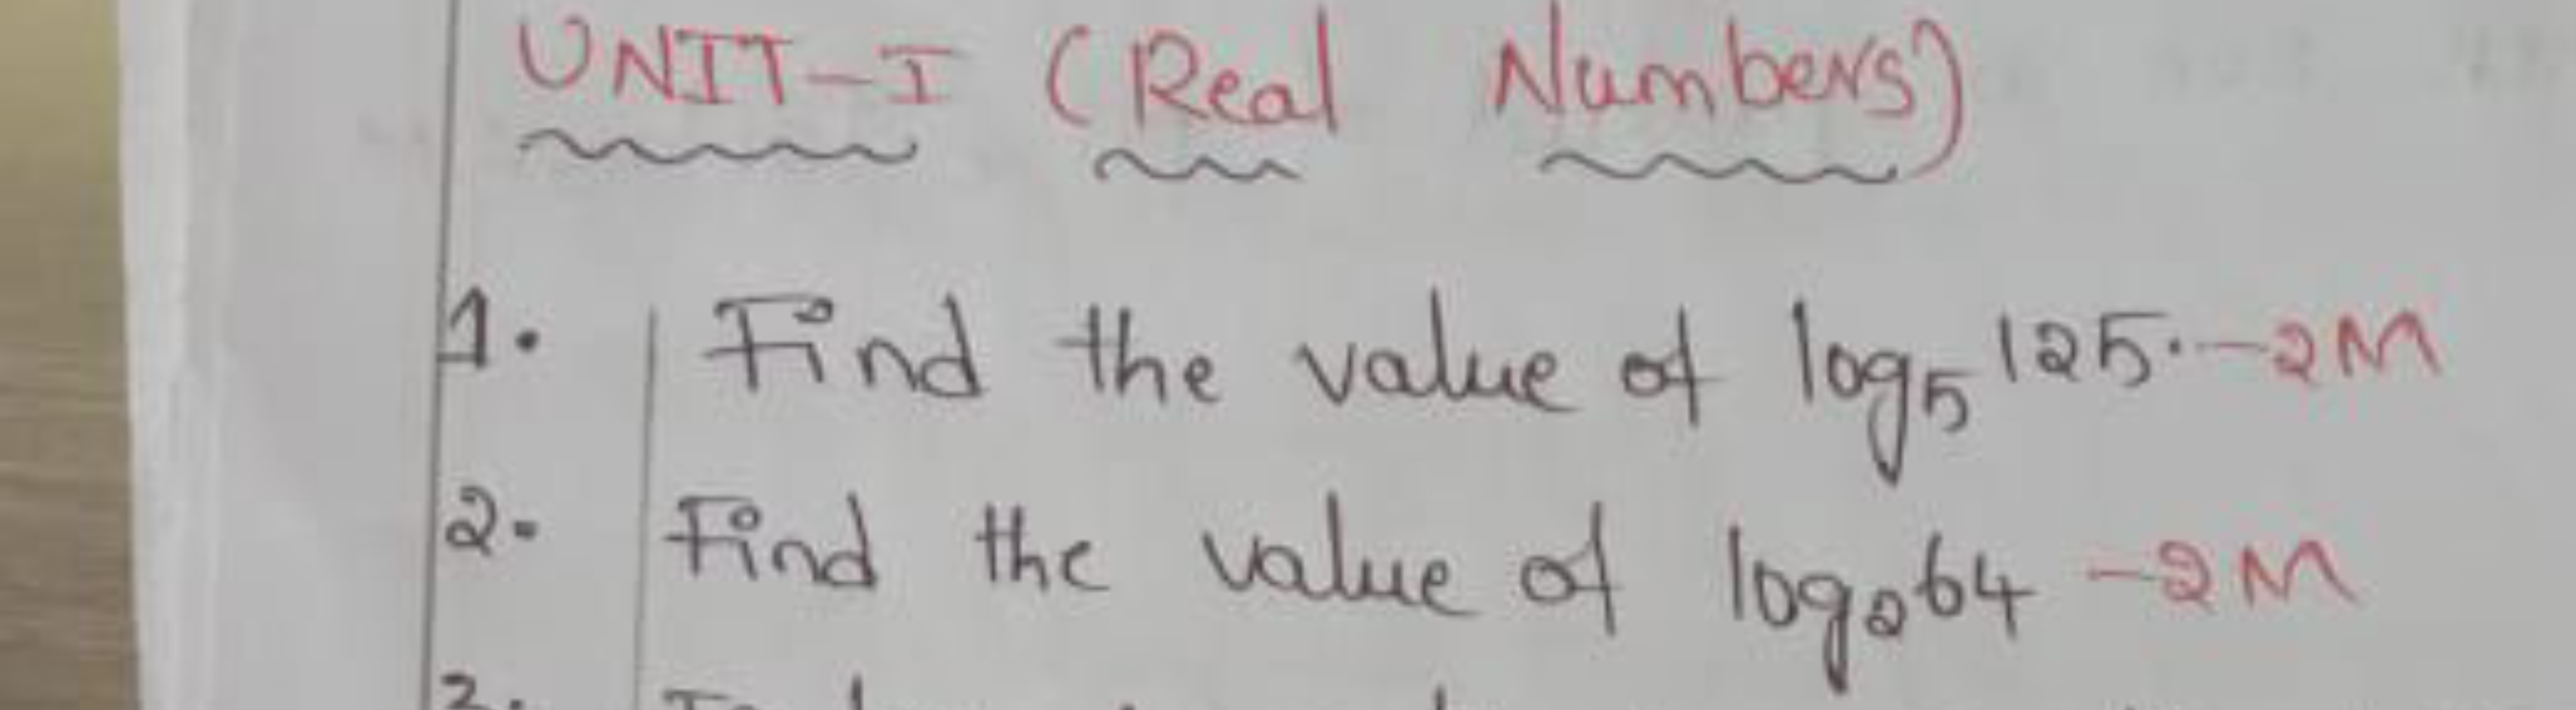 UNIT-I (Real Numbers)
1. Find the value of log₅125. -2M
2. Find the value of log₂64 -2M
3.